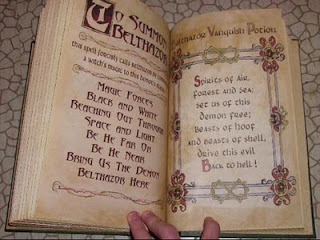 To Summon
Belthazor
this spell forcibly calls Belthazor by
a witch's magic to this
Magic Forces
Black and White
Reaching Out Through
Space and Light
Be He Far Or
Be He Near
Bring Us The Demon
Belthazor Here
Belthazor Vanquish Potion
Spirits of air,
forest and sea,
set us of this
demon free;
Beasts of hoof
and beasts of shell,
drive this evil
Back to hell!